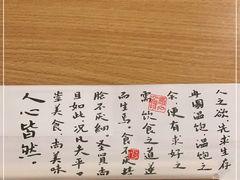 人之欲，先求生存
圖温饱，温饱之
余，便有求好之
需，饮食之道遂
而生焉。食不厌精
脍不厌细。圣贤尚
且如此，况凡夫乎。
崇美食，尚美味
人心皆然。